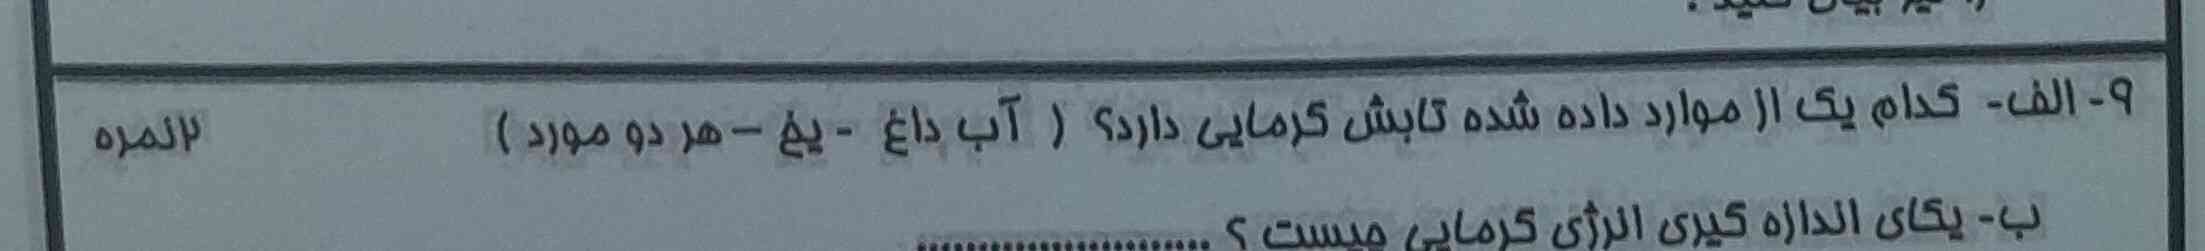 ۹- الف- کدام یک از موارد داده شده تابش گرمایی دارد؟ ( آب داغ - یخ – هر دو مورد ) ۲نمره
ب- یکای اندازه گیری انرژی گرمایی چیست ؟ ........................